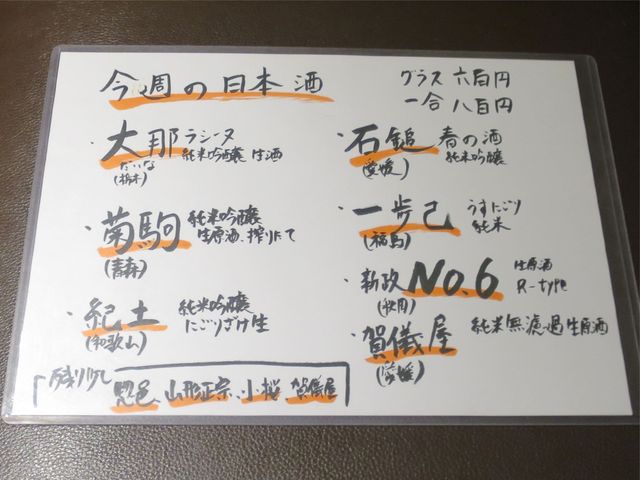 今週の日本酒
グラス 六百円
一合 八百円
・大那 ラシーヌ
純米吟醸 生酒
だいな
(栃木)
・菊駒 純米吟醸
生原酒、搾りたて
(青森)
・紀土 純米吟醸
にごりざけ生
(和歌山)
・石鎚 春の酒
純米吟醸
(愛媛)
・一歩己 うすにごり
純米
(福島)
・新政 No.6 生原酒
R-type
(秋田)
・賀儀屋 純米無濾過生原酒
(愛媛)
残り少し
山形正宗、小桜 賀儀屋